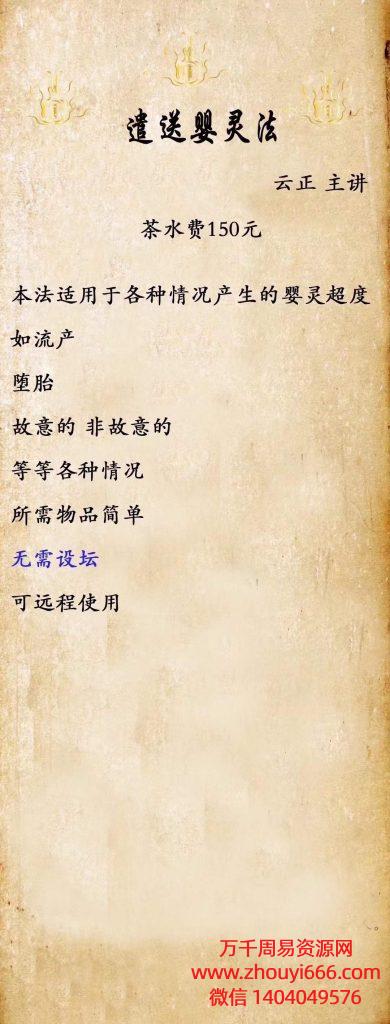 遣送婴灵法
云正 主讲
茶水费150元
本法适用于各种情况产生的婴灵超度
如流产
堕胎
故意的 非故意的
等等各种情况
所需物品简单
无需设坛
可远程使用
万千周易资源网
www.zhouyi666.com
微信 1404049576